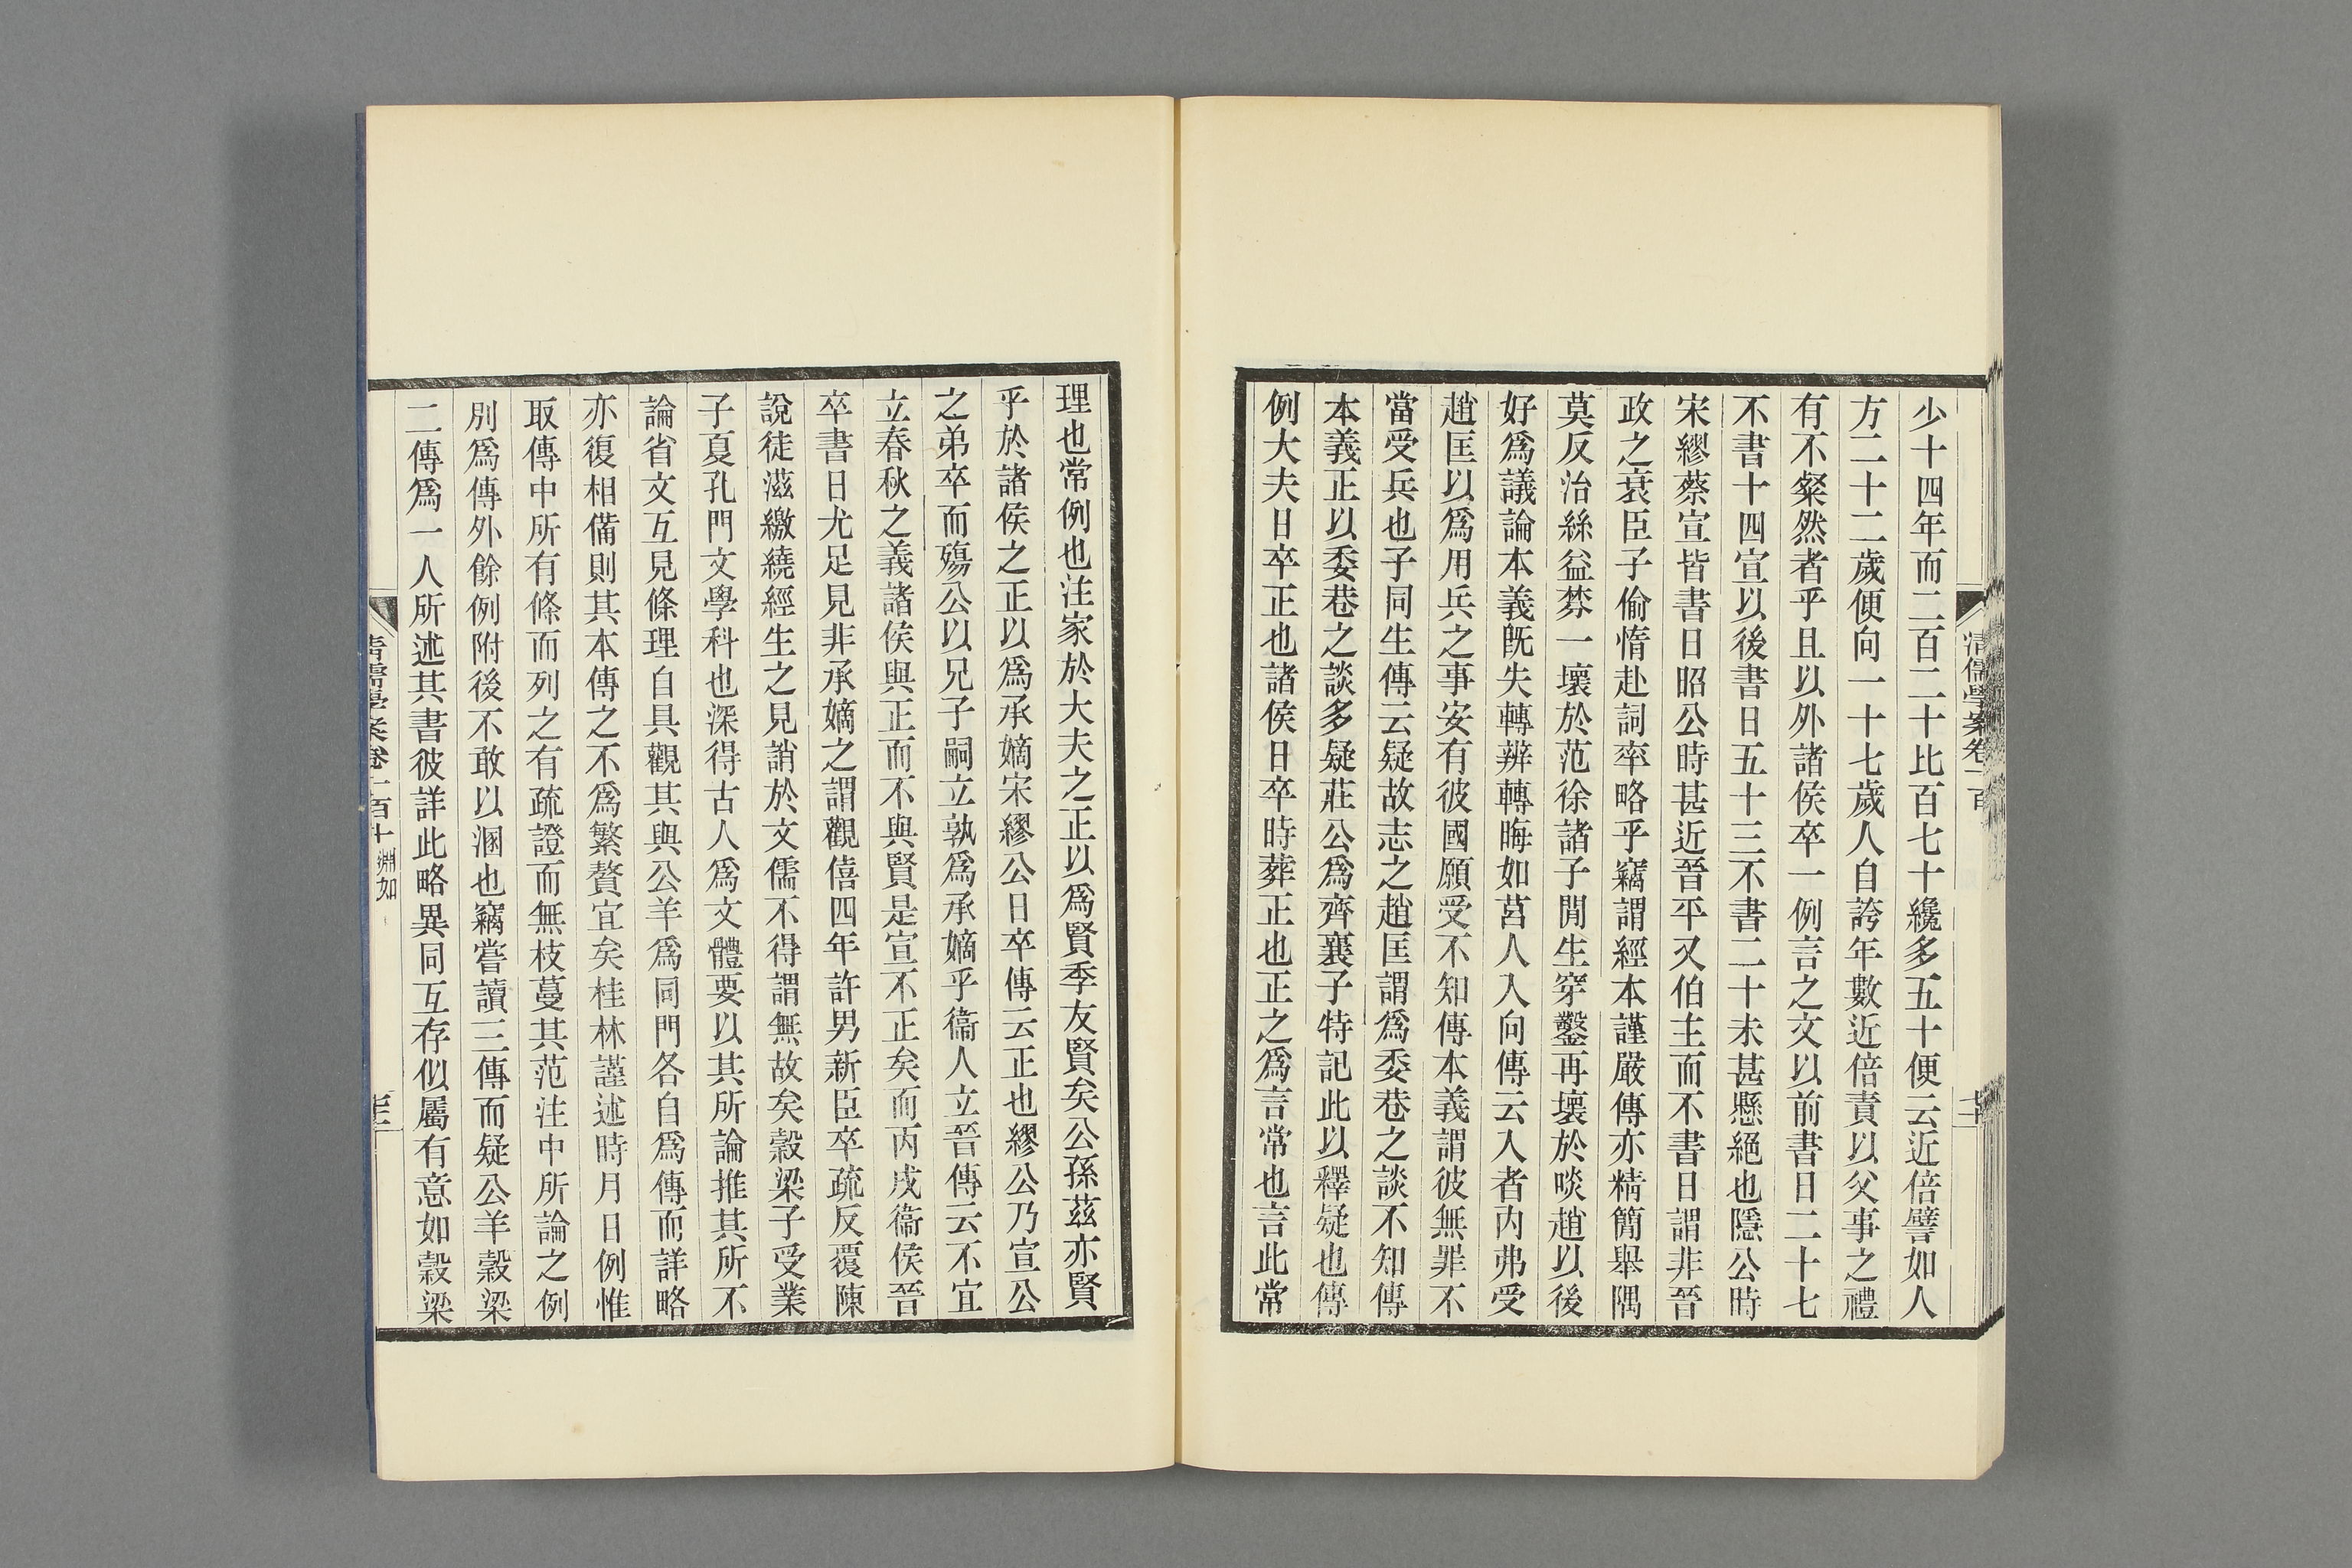 少十四年而二百二十比百七十纔多五十便云近倍譬如人
方二十二歲便向一十七歲人自誇年數近倍責以父事之禮
有不粲然者乎且以外諸侯卒一例言之文以前書日二十七
不書十四宣以後書日五十三不書二十未甚懸絕也隱公時
宋繆蔡宣皆書日昭公時甚近晉平又伯主而不書日謂非晉
政之衰臣子偷惰赴詞率略乎竊謂經本謹嚴傳亦精簡舉隅
莫反治絲益棼一壞於范徐諸子閒生穿鑿再壞於啖趙以後
好爲議論本義既失轉辨轉晦如莒人入向傳云入者內弗受
趙匡以爲用兵之事安有彼國願受不知傳本義謂彼無罪不
當受兵也子同生傳云疑故志之趙匡謂爲委巷之談不知傳
本義正以委巷之談多疑莊公爲齊襄子特記此以釋疑也傳
例大夫日卒正也諸侯日卒時葬正也正之爲言常也言此常
清儒學案卷一百
理也常例也注家於大夫之正以爲賢季友賢矣公孫茲亦賢
乎於諸侯之正以爲承嫡宋繆公日卒傳云正也繆公乃宣公
之弟卒而殤公以兄子嗣立孰爲承嫡乎衞人立晉傳云不宜
立春秋之義諸侯與正而不與賢是宣不正矣而丙戌衞侯晉
卒書日尤足見非承嫡之謂觀僖四年許男新臣卒疏反覆陳
說徒滋繳繞經生之見誚於文儒不得謂無故矣穀梁子受業
子夏孔門文學科也深得古人爲文體要以其所論推其所不
論省文互見條理自具觀其與公羊爲同門各自爲傳而詳略
亦復相備則其本傳之不爲繁贅宜矣桂林謹述時月日例惟
取傳中所有條而列之有疏證而無枝蔓其范注中所論之例
別爲傳外餘例附後不敢以溷也竊嘗讀三傳而疑公羊穀梁
二傳爲一人所述其書彼詳此略異同互存似屬有意如穀梁
清儒學案卷一百十 淵如